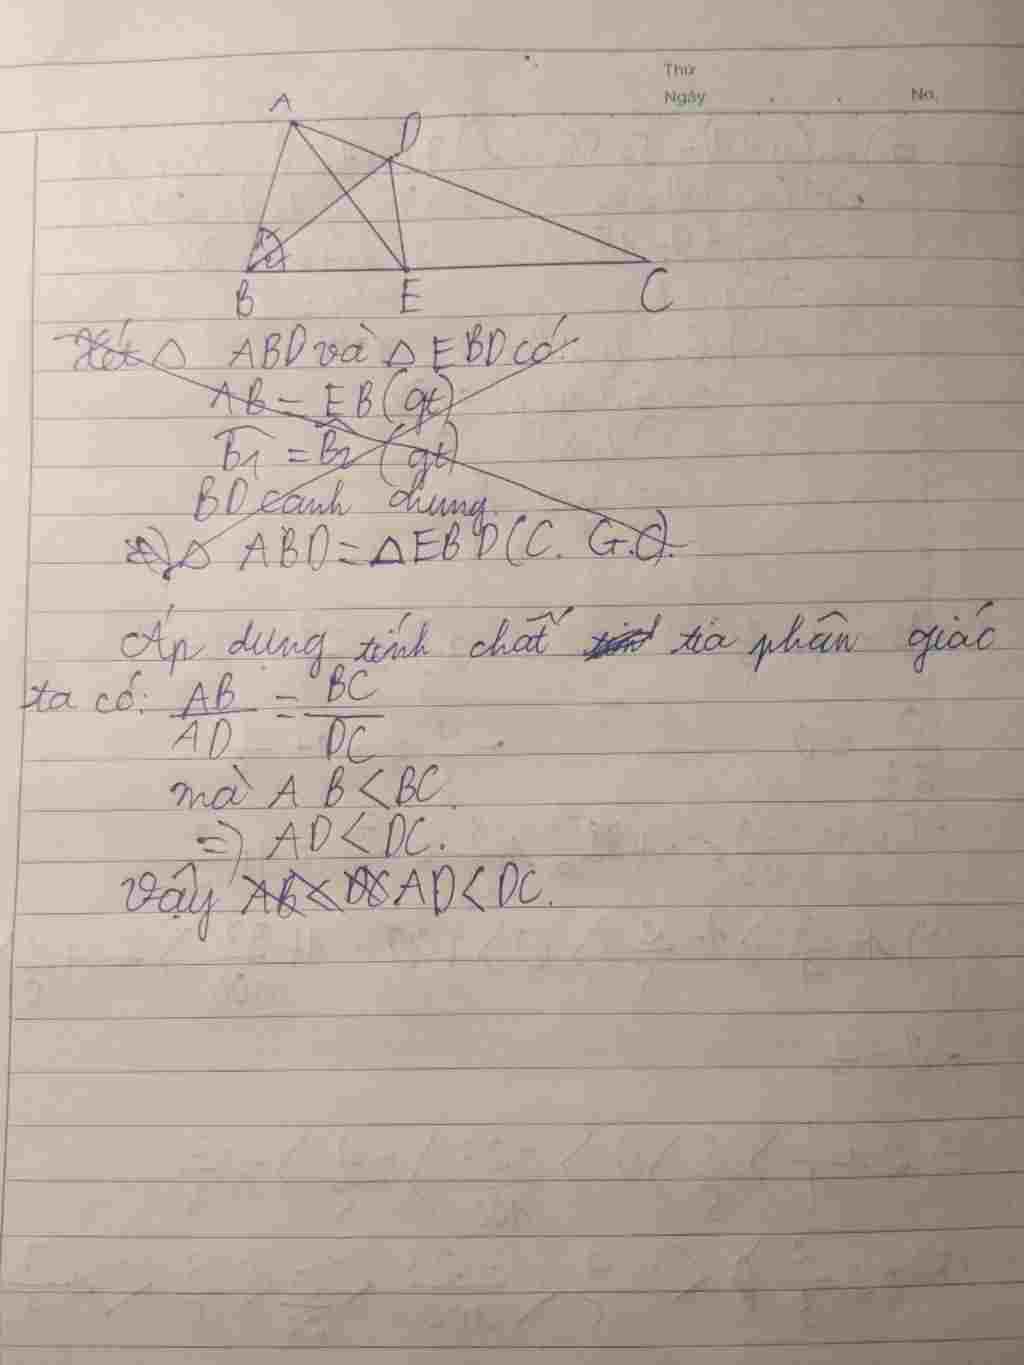 Thứ
Ngày . . No.
A
D
B E C
Xét △ ABD và △ EBD có:
AB = EB (gt)
B̂1 = B̂2 (gt)
BD cạnh chung.
=> △ ABD = △EBD (C. G.C).
Áp dụng tính chất tia phân giác
ta có: AB/AD = BC/DC
mà AB < BC.
=> AD < DC.
Vậy AB < DC AD < DC.